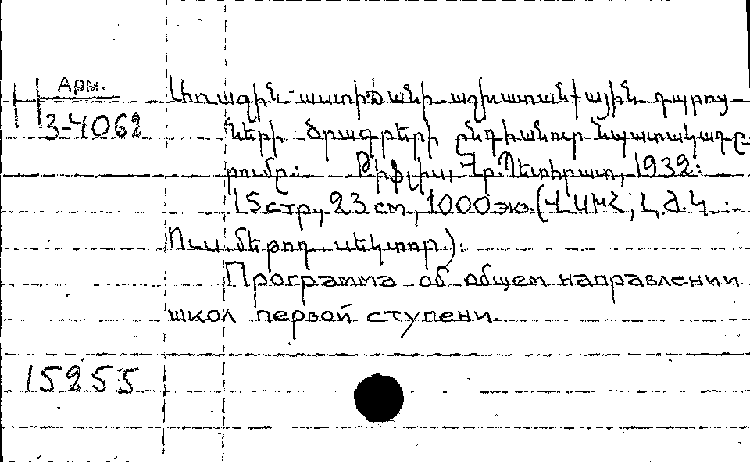 Арм.
3-4062
Առաջին աստիճանի աշխատանքային դպրոց-
ների ծրագրերի ընդհանուր նպատակադը-
րումը: Թիֆլիս, Հր. Պետհրատ, 1932:
15 стр., 23 см, 1000 экз. (ՎՍԽՀ, Լ.Ժ.Կ.
Ուս. մեթոդ սեկտոր).
Программа об общем направлении
школ первой ступени.
15255